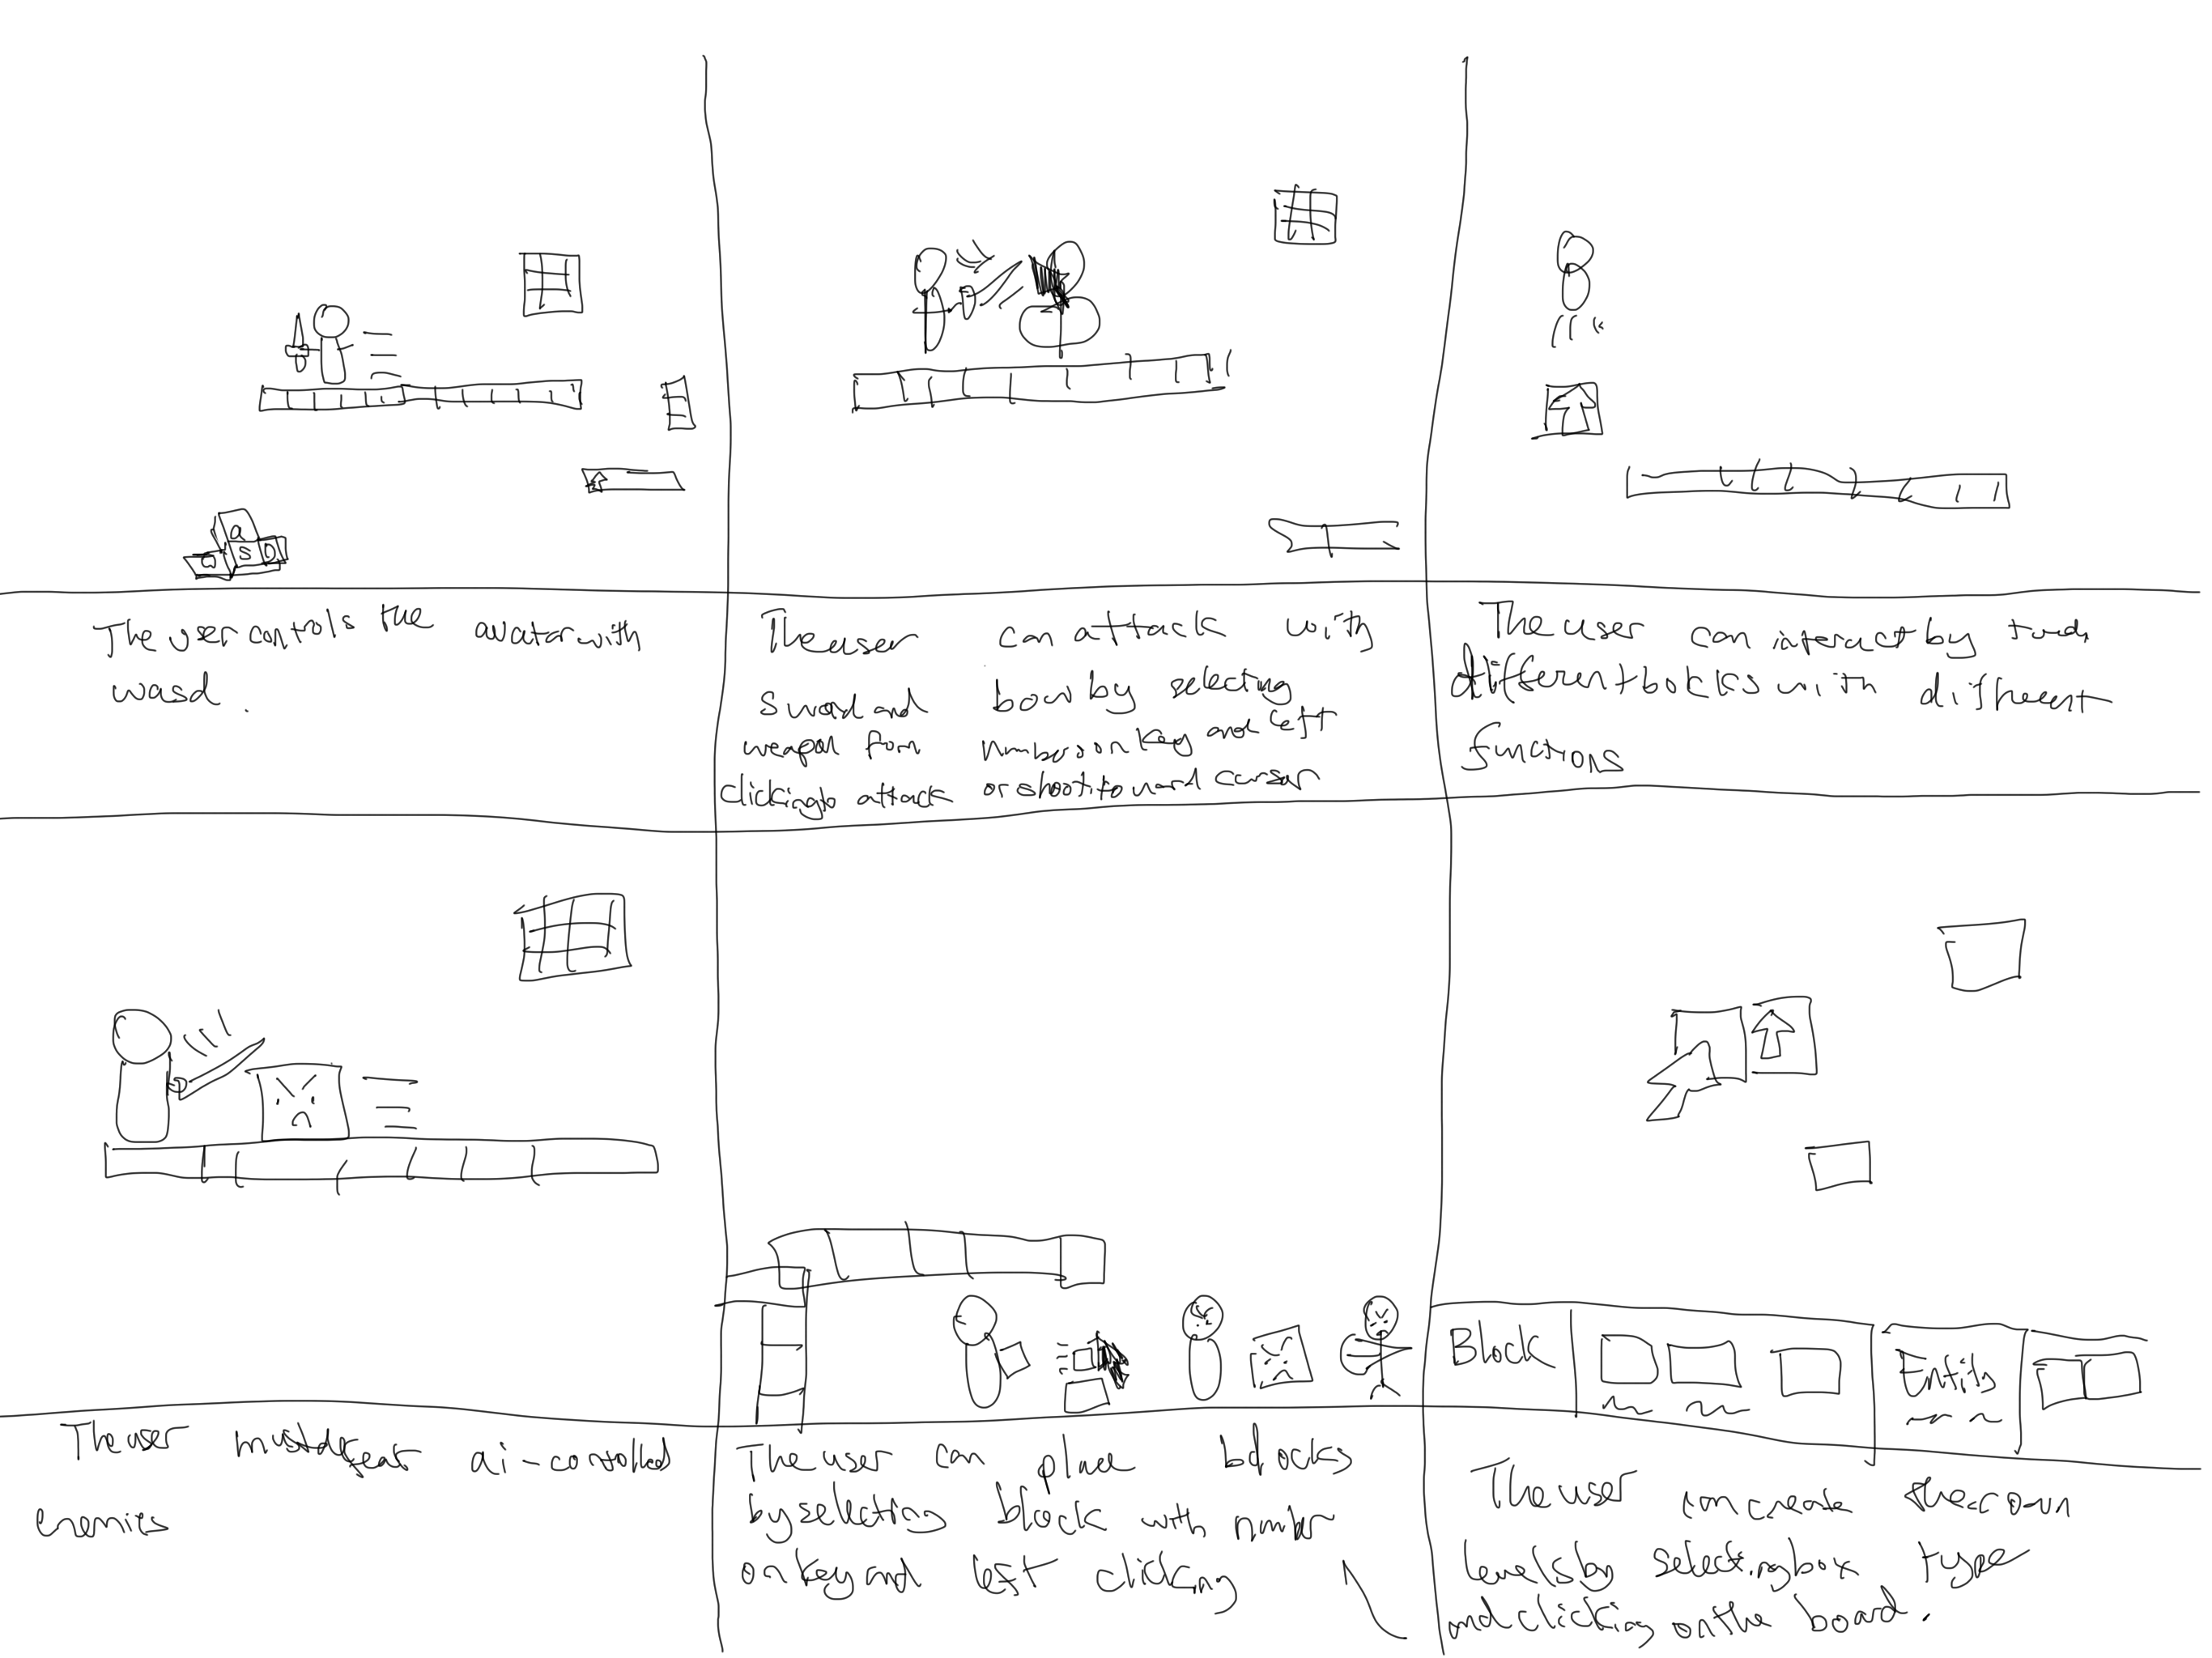 a
S D
The user controls the avatar with
wasd.
The user can attack with
sword and bow by selecting
weapon from numbers on key and left
clicking to attack or shoot toward cursor
The user can interact by
different blocks with different
functions
The user must defeat ai-controlled
enemies
The user can place blocks
by selecting block with number
on key and left clicking
Block
Entity
The user can create their own
levels by selecting box type
and clicking on the board.